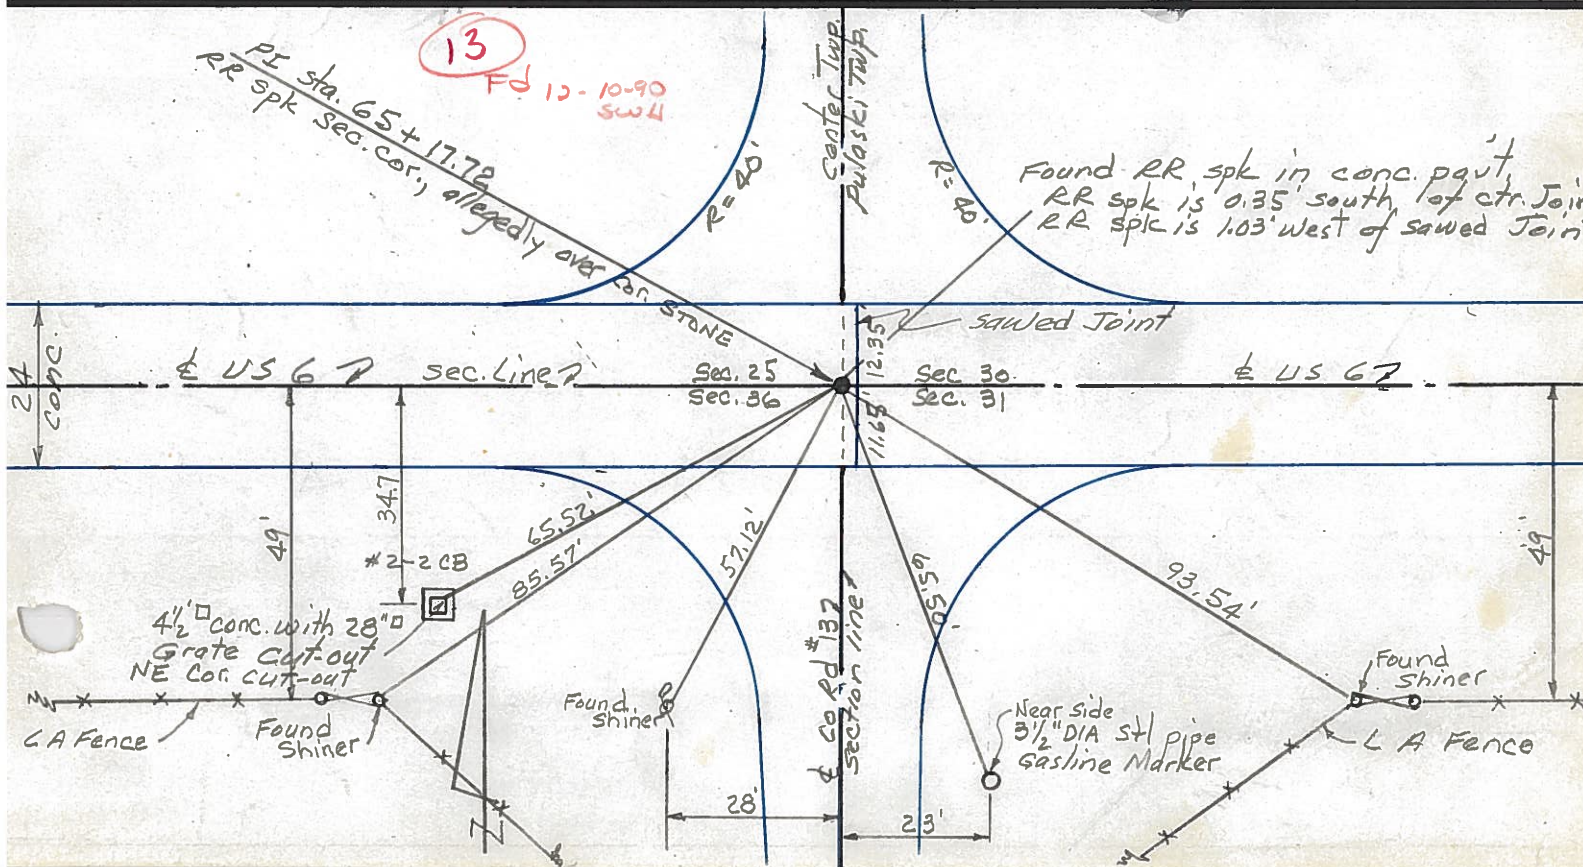 13
Fd 12-10-90
SWH
PI sta. 65+17.72
RR spk sec. cor., allegedly over cor. STONE
Center Twp.
Pulaski Twp.
R=40'
R=40'
Found RR spk in conc. pav't,
RR spk is 0.35' south of ctr. Join
RR spk is 1.03' west of sawed Join
Sawed Joint
24
conc.
℄ US 6
sec. Line
Sec. 25
Sec. 36
12.35'
11.65'
Sec 30
Sec. 31
℄ US 6
49'
34.7
#2-2 CB
65.52'
85.57'
57.12'
65.50'
93.54'
49'
4½'□ conc. with 28"□
Grate cut-out
NE Cor. cut-out
LA Fence
Found
Shiner
Found
Shiner
℄ Co Rd #137
section line
Near side
3½" DIA Stl pipe
Gasline Marker
Found
Shiner
L A Fence
28'
23'
N